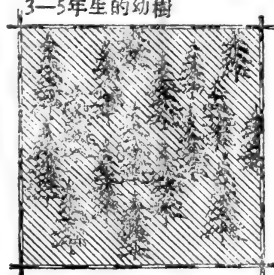 3—5年生的幼樹